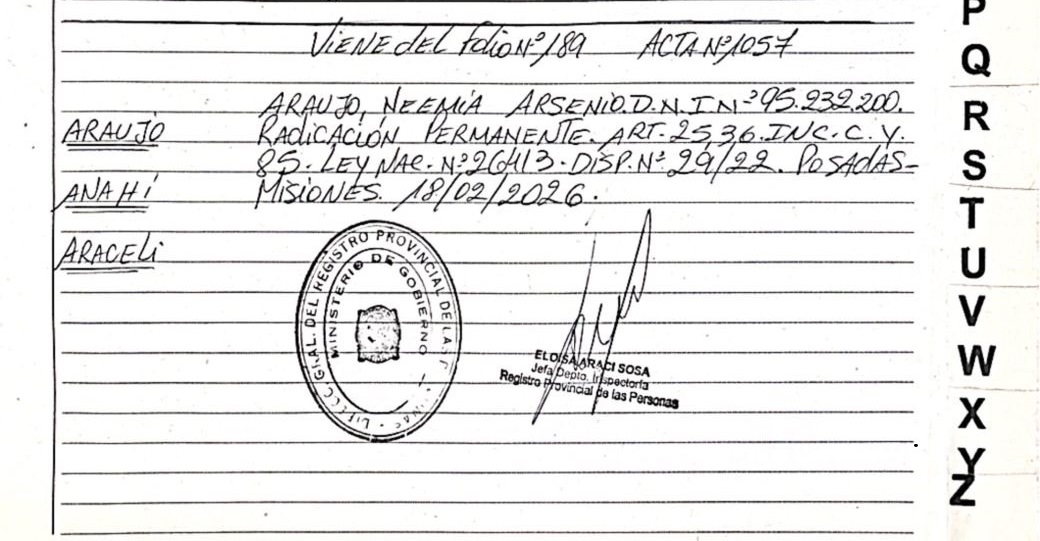 VIENE del folio Nº189 ACTA Nº1057
ARAUJO, NEEMIA ARSENIO. D.N.I Nº 95.232.200.
ARAUJO RADICACIÓN PERMANENTE. ART. 25,36. INC. C. Y.
85. LEY NAC. Nº 26413. DISP. Nº 29/22. POSADAS-
ANAHÍ MISIONES. 18/02/2026.
ARACELI
GRAL. DEL REGISTRO PROVINCIAL DE LAS
MINISTERIO DE GOBIERNO
ELOISA ARACI SOSA
Jefa Depto. Inspectoría
Registro Provincial de las Personas
P
Q
R
S
T
U
V
W
X
Y
Z